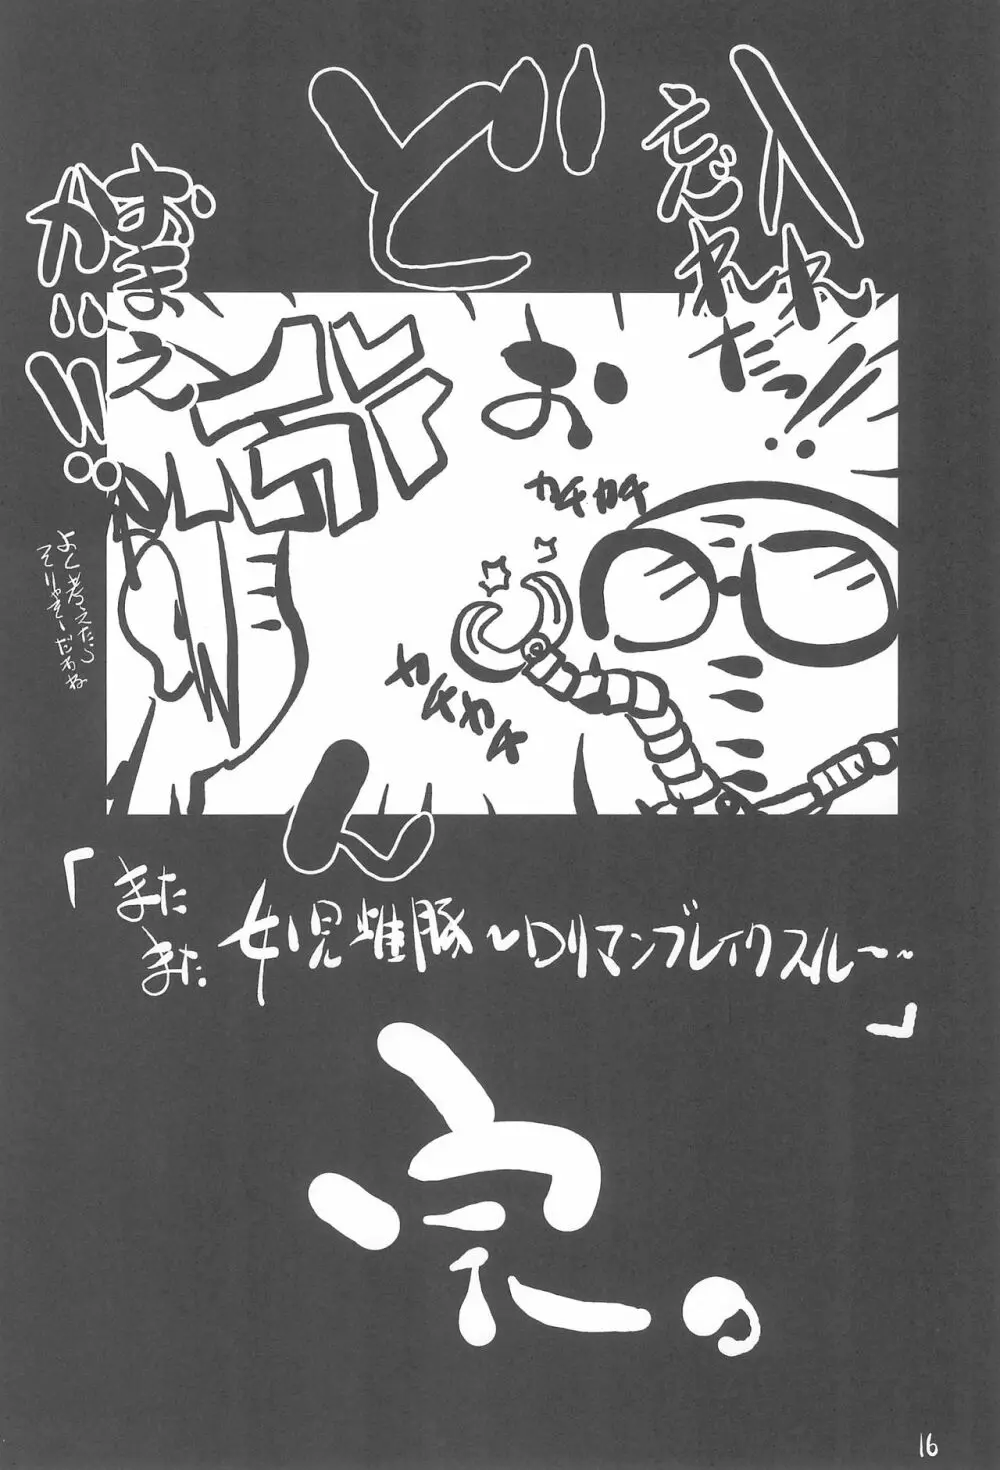 入れ
忘れ
れたっ!!
どおん
おまえ
かい!!
よく考えたら
そりゃそーだわね
カチカチ
カチカチ
「また
また
女児雌豚～Dリマンブレイクスルー～
」
完。
16